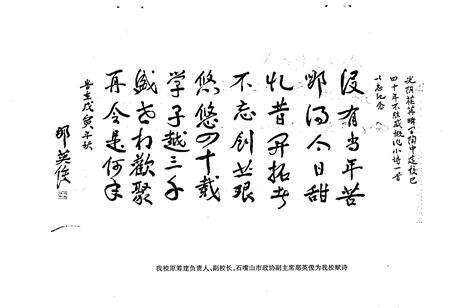 光阴荏苒 陶中建校已
四十年不胜感慨作小诗一首
以志纪念
没有当年苦
那得今日甜
忆昔开拓者
不忘创业艰
悠悠四十载
学子越三千
盛世相歡聚
再会是何年
戊寅年秋
英俊
我校原筹建负责人、副校长,石嘴山市政协副主席 英俊为我校赋诗